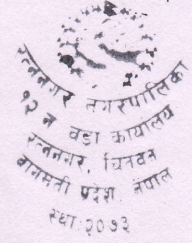 रत्ननगर नगरपालिका
१२ नं वडा कार्यालय
रत्ननगर, चितवन
बागमती प्रदेश, नेपाल
स्था:२०७३